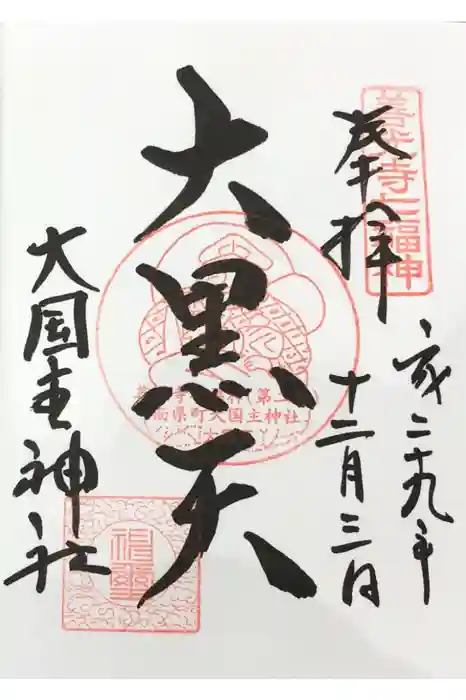 善光寺七福神
奉拝
平成二十九年
十二月三日
大黒天
南県町大国主神社
大国主神社